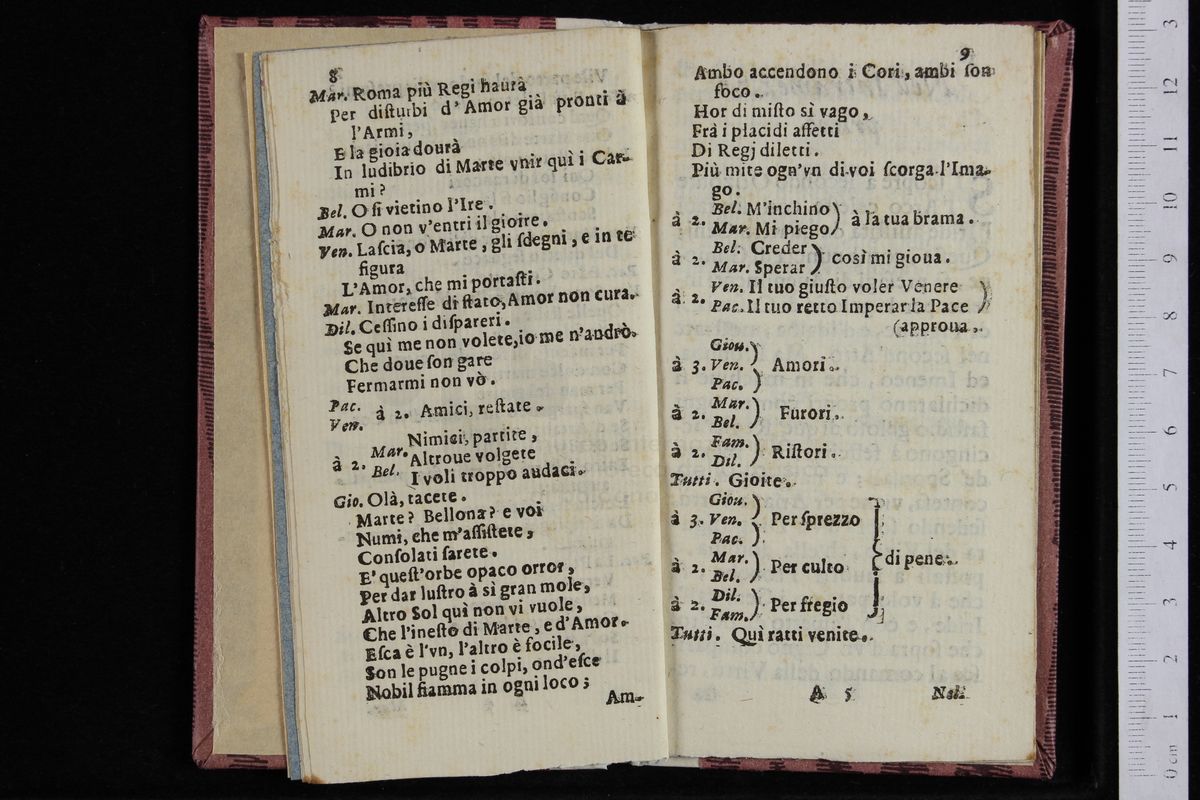 8
Mar. Roma più Regi haurà
Per disturbi d'Amor già pronti à
l'Armi,
E la gioia dourà
In ludibrio di Marte vnir quì i Car-
mi?
Bel. O si vietino l'Ire.
Mar. O non v'entri il gioire.
Ven. Lascia, o Marte, gli sdegni, e in te
figura
L'Amor, che mi portasti.
Mar. Interesse di stato, Amor non cura.
Dil. Cessino i dispareri.
Se quì me non volete, io me n'andrò.
Che doue son gare
Fermarmi non vò.
Pac.
Ven. à 2. Amici, restate.
Nimici, partite,
à 2. Mar. Altroue volgete
Bel. I voli troppo audaci.
Gio. Olà, tacete.
Marte? Bellona? e voi
Numi, che m'assistete,
Consolati sarete.
E' quest'orbe opaco orror,
Per dar lustro à sì gran mole,
Altro Sol quì non vi vuole,
Che l'inesto di Marte, e d'Amor.
Esca è l'vn, l'altro è focile,
Son le pugne i colpi, ond'esce
Nobil fiamma in ogni loco;
Am-
9
Ambo accendono i Cori, ambi son
foco.
Hor di misto sì vago,
Frà i placidi affetti
Di Regj diletti.
Più mite ogn'vn di voi scorga l'Ima-
go.
à 2. Bel. M'inchino
Mar. Mi piego) à la tua brama.
à 2. Bel. Creder
Mar. Sperar) così mi gioua.
à 2. Ven. Il tuo giusto voler Venere
Pac. Il tuo retto Imperar la Pace)
(approua.
Giou.)
à 3. Ven. Amori.
Pac.)
à 2. Mar.
Bel.) Furori.
à 2. Fam.
Dil.) Ristori.
Tutti. Gioite.
Giou.)
à 3. Ven. Per sprezzo
Pac.)
à 2. Mar.
Bel.) Per culto } di pene.
à 2. Dil.
Fam.) Per fregio
Tutti. Quì ratti venite.
A 5 Nel.
3
12
11
10
9
8
7
6
5
4
3
2
1
0 cm